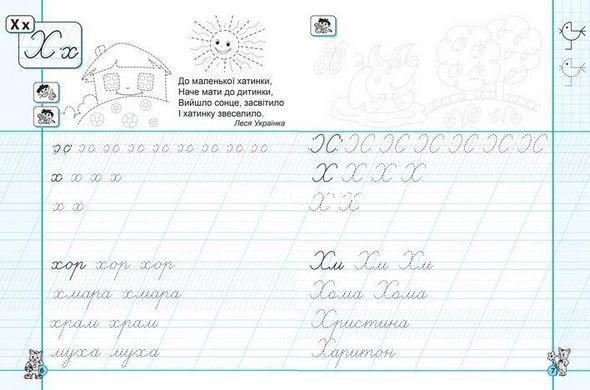 Х х
Х х
До маленької хатинки,
Наче мати до дитинки,
Вийшло сонце, засвітило
І хатинку звеселило.
Леся Українка
х х х х
х х
хор хор хор
хмара хмара
храм храм
муха муха
6
Х
Х Х Х Х
Х Х
Хм Хм Хм
Хома Хома
Христина
Харитон
7